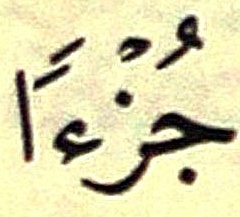 جُزْءًا